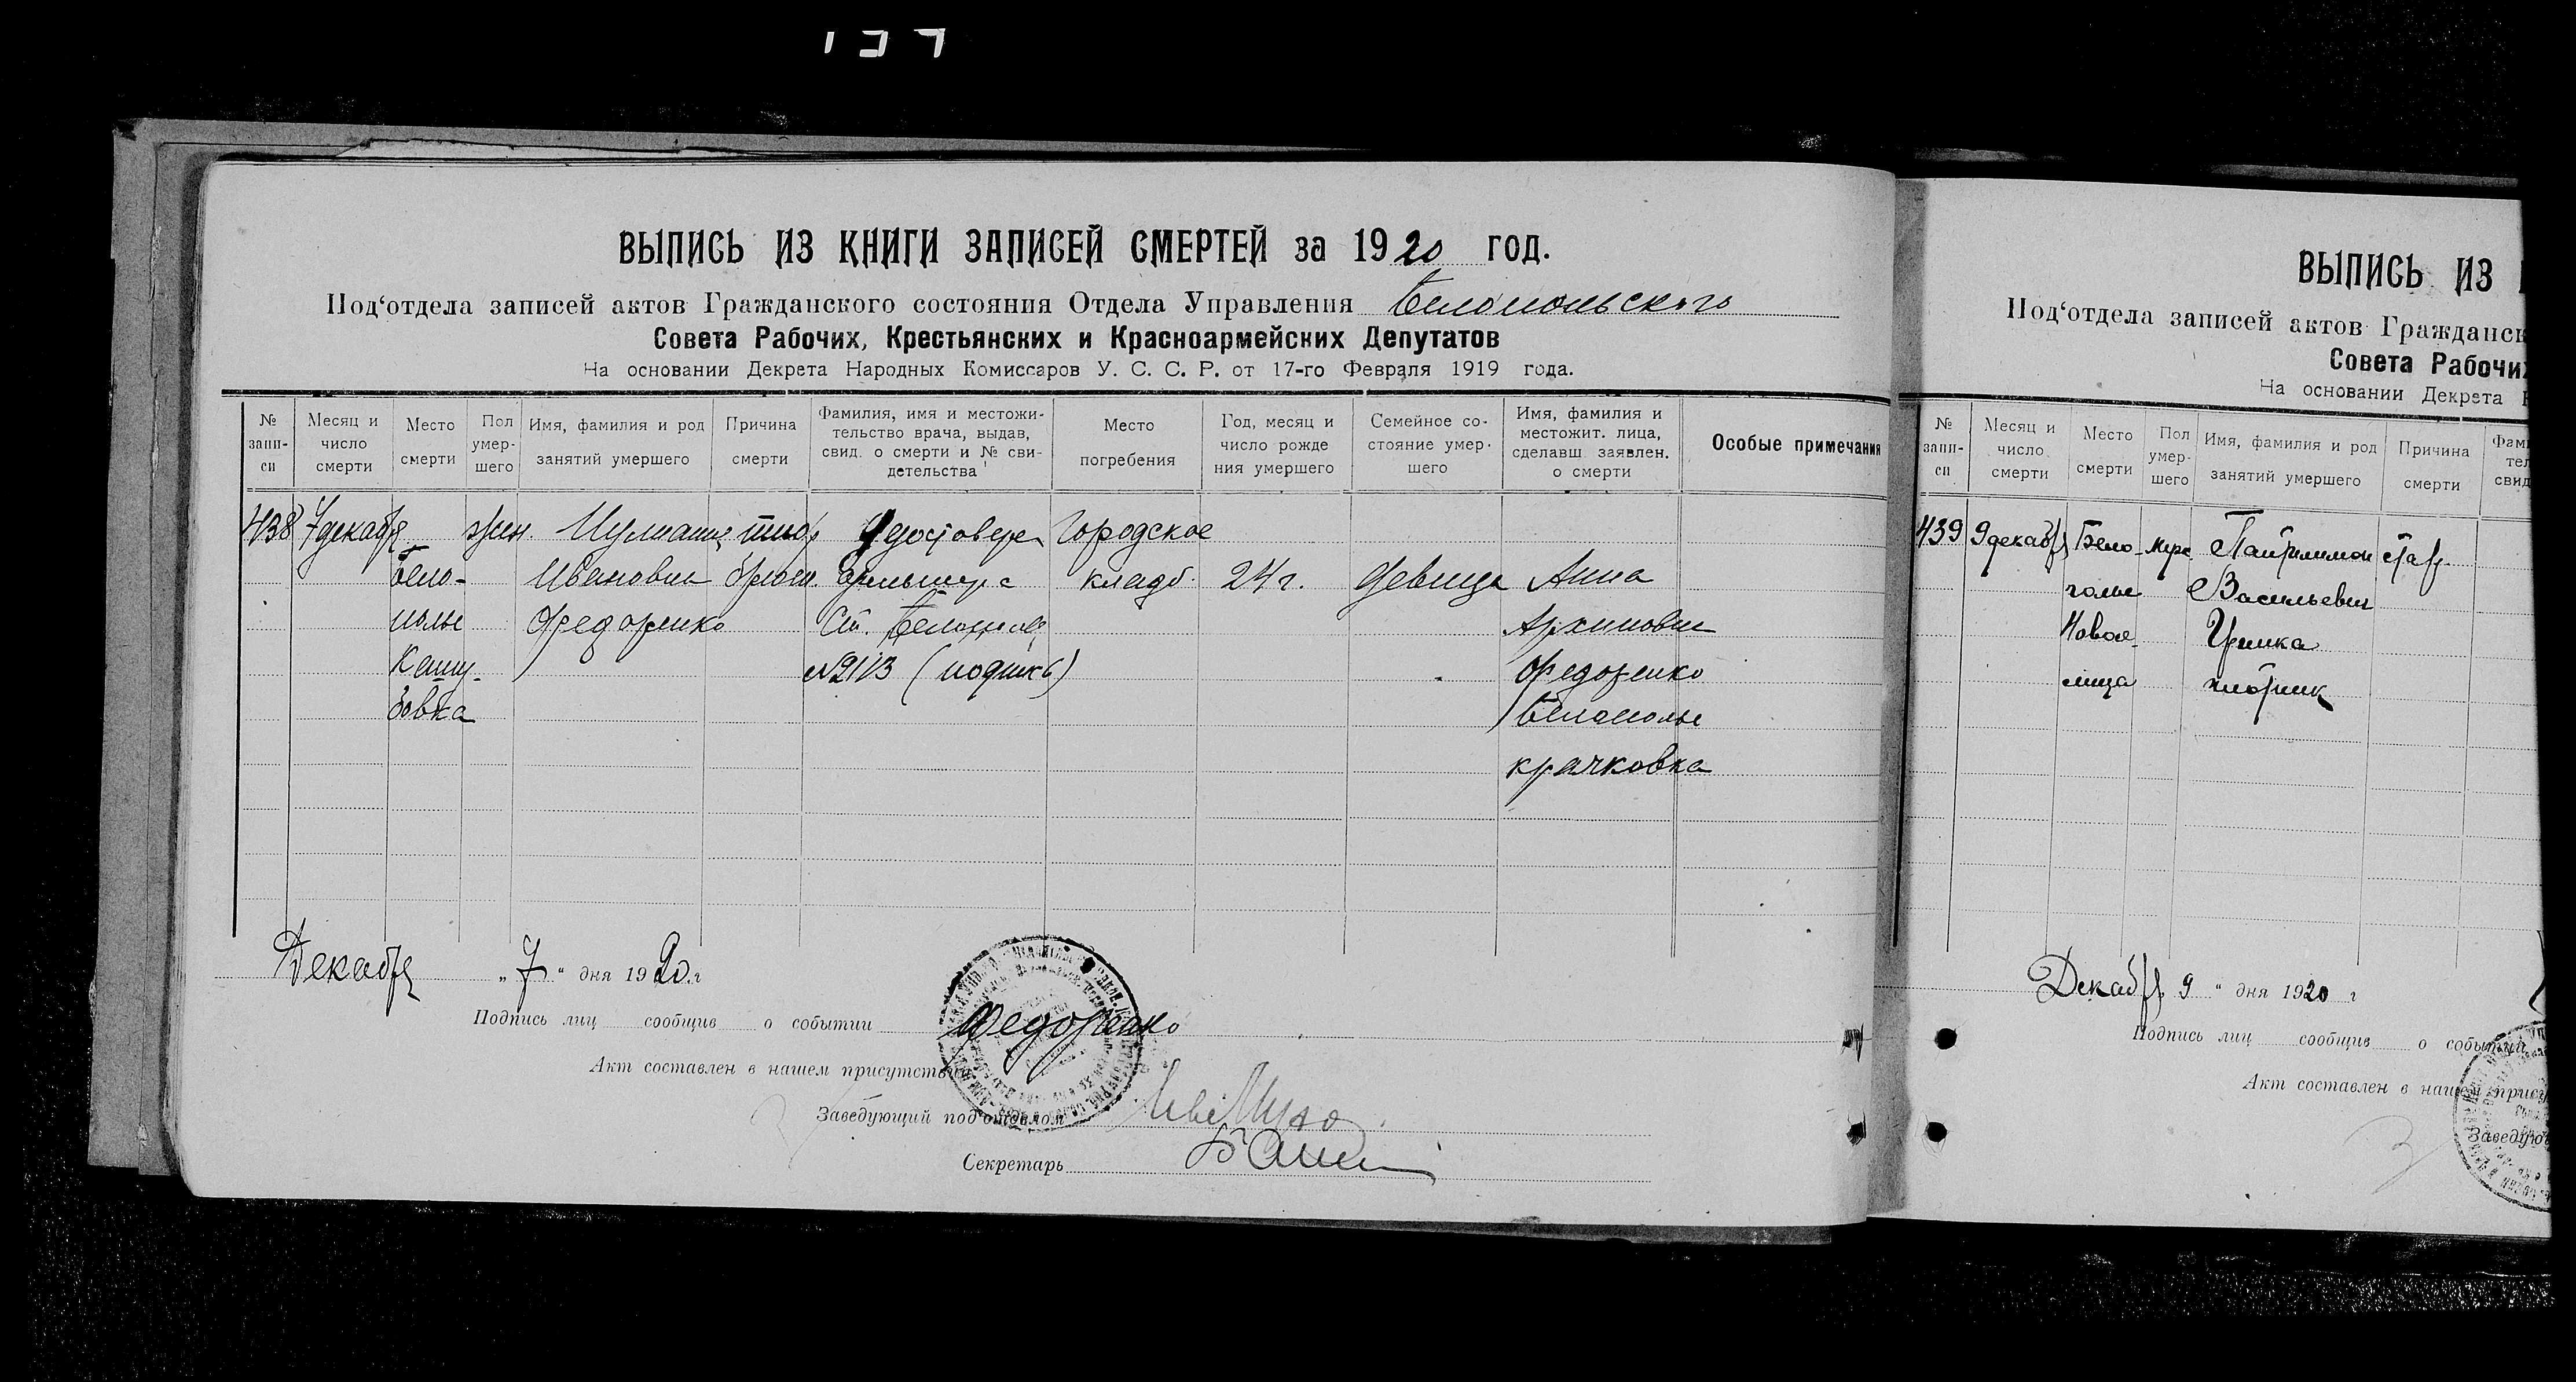 ВЫПИСЬ ИЗ КНИГИ ЗАПИСЕЙ СМЕРТЕЙ за 1920 год.
Под‘отдела записей актов Гражданского состояния Отдела Управления Белопольского
Совета Рабочих, Крестьянских и Красноармейских Депутатов
На основании Декрета Народных Комиссаров У. С. С. Р. от 17-го Февраля 1919 года.
№ запи-си
Месяц и число смерти
Место смерти
Пол умер-шего
Имя, фамилия и род занятий умершего
Причина смерти
Фамилия, имя и местожи-тельство врача, выдав, свид. о смерти и № сви-детельства
Место погребения
Год, месяц и число рожде ния умершего
Семейное со-стояние умер-шего
Имя, фамилия и местожит. лица, сделавш. заявлен. о смерти
Особые примечания
438 7 декабря жен. Удостовер Городское
Бело- Ивановна брюш. фельдшера кладб. 24 г. девица Анна
полье Федоренко Ст. Белополье Архиповна
№ 2113 (подпись) Федоренко
Белополье
Крачковка
Декабря „7“ дня 1920 г
Подпись лиц сообщив о событии Федоренко
Акт составлен в нашем присутствии
Заведующий под‘отделом
Секретарь
ВЫПИСЬ ИЗ
Под‘отдела записей актов Гражданск
Совета Рабочих
На основании Декрета
№ запи-си
Месяц и число смерти
Место смерти
Пол умер-шего
Имя, фамилия и род занятий умершего
Причина смерти
439 9 декабря Бело- муж.
полье Васильевич
Новое
Декабря 9 “ дня 1920 г
Подпись лиц сообщив о событии
Акт составлен в нашем прису
Заведую